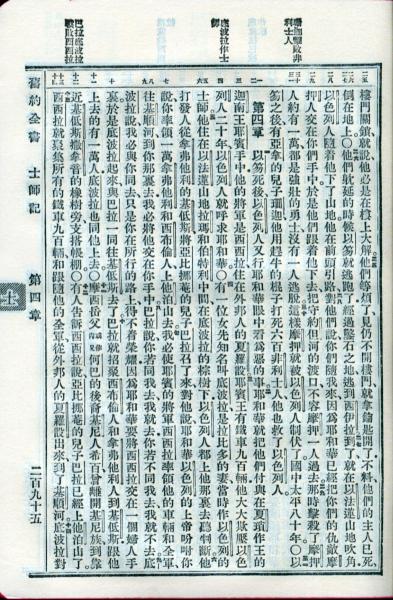 珊迦擊敗非
利士人
底波拉作士
師
巴拉底波拉
戰敗西西拉
樓門關鎖就說他必是在樓上大解他們等煩了見仍不開樓門就拿鑰匙開了不料他們的主人已死
倒在地上○他們躭延的時候以笏就逃跑了經過鑿石之地逃到西伊拉到了就在以法蓮山地吹角
以色列人隨着他下了山地他在前頭引路對他們說你們隨我來因爲耶和華已經把你們的仇敵摩
押人交在你們手中於是他們跟着他下去把守約但河的渡口不容摩押一人過去那時擊殺了摩押
人約有一萬都是強壯的勇士沒有一人逃脫這樣摩押就被以色列人制伏了國中太平八十年○以
笏之後有亞拿的兒子珊迦他用趕牛的棍子打死六百非利士人他也救了以色列人
第四章 以笏死後以色列人又行耶和華眼中看爲惡的事耶和華就把他們付與在夏瑣作王的
迦南王耶賓手中他的將軍是西西拉住在外邦人的夏羅設耶賓王有鐵車九百輛他大大欺壓以色
列人二十年以色列人就呼求耶和華○有一位女先知名叫底波拉是拉比多的妻當時作以色列的
士師他住在以法蓮山地拉瑪和伯特利中間在底波拉的棕樹下以色列人都上他那裏去聽判斷他
打發人從拿弗他利的基低斯將亞比挪菴的兒子巴拉召了來對他說耶和華以色列的上帝吩咐你
說你率領一萬拿弗他利和西布倫人上他泊山去我必使耶賓的將軍西西拉率領他的車輛和全軍
往基順河到你那裏去我必將他交在你手中巴拉說你若同我去我就去你若不同我去我就不去底
波拉說我必與你同去只是你在所行的路上得不着榮耀因爲耶和華要將西西拉交在一個婦人手
裏於是底波拉起來與巴拉一同往基低斯去了巴拉就招聚西布倫人和拿弗他利人到基低斯跟他
上去的有一萬人底波拉也同他上去○摩西岳父何巴的後裔基尼人希百曾離開基尼族到靠
近基低斯撒拿音的橡樹旁支搭帳棚○有人告訴西西拉說亞比挪菴的兒子巴拉已經上他泊山了
西西拉就聚集所有的鐵車九百輛和跟隨他的全軍從外邦人的夏羅設出來到了基順河底波拉對
舊約全書 士師記 第四章 二百九十五
士